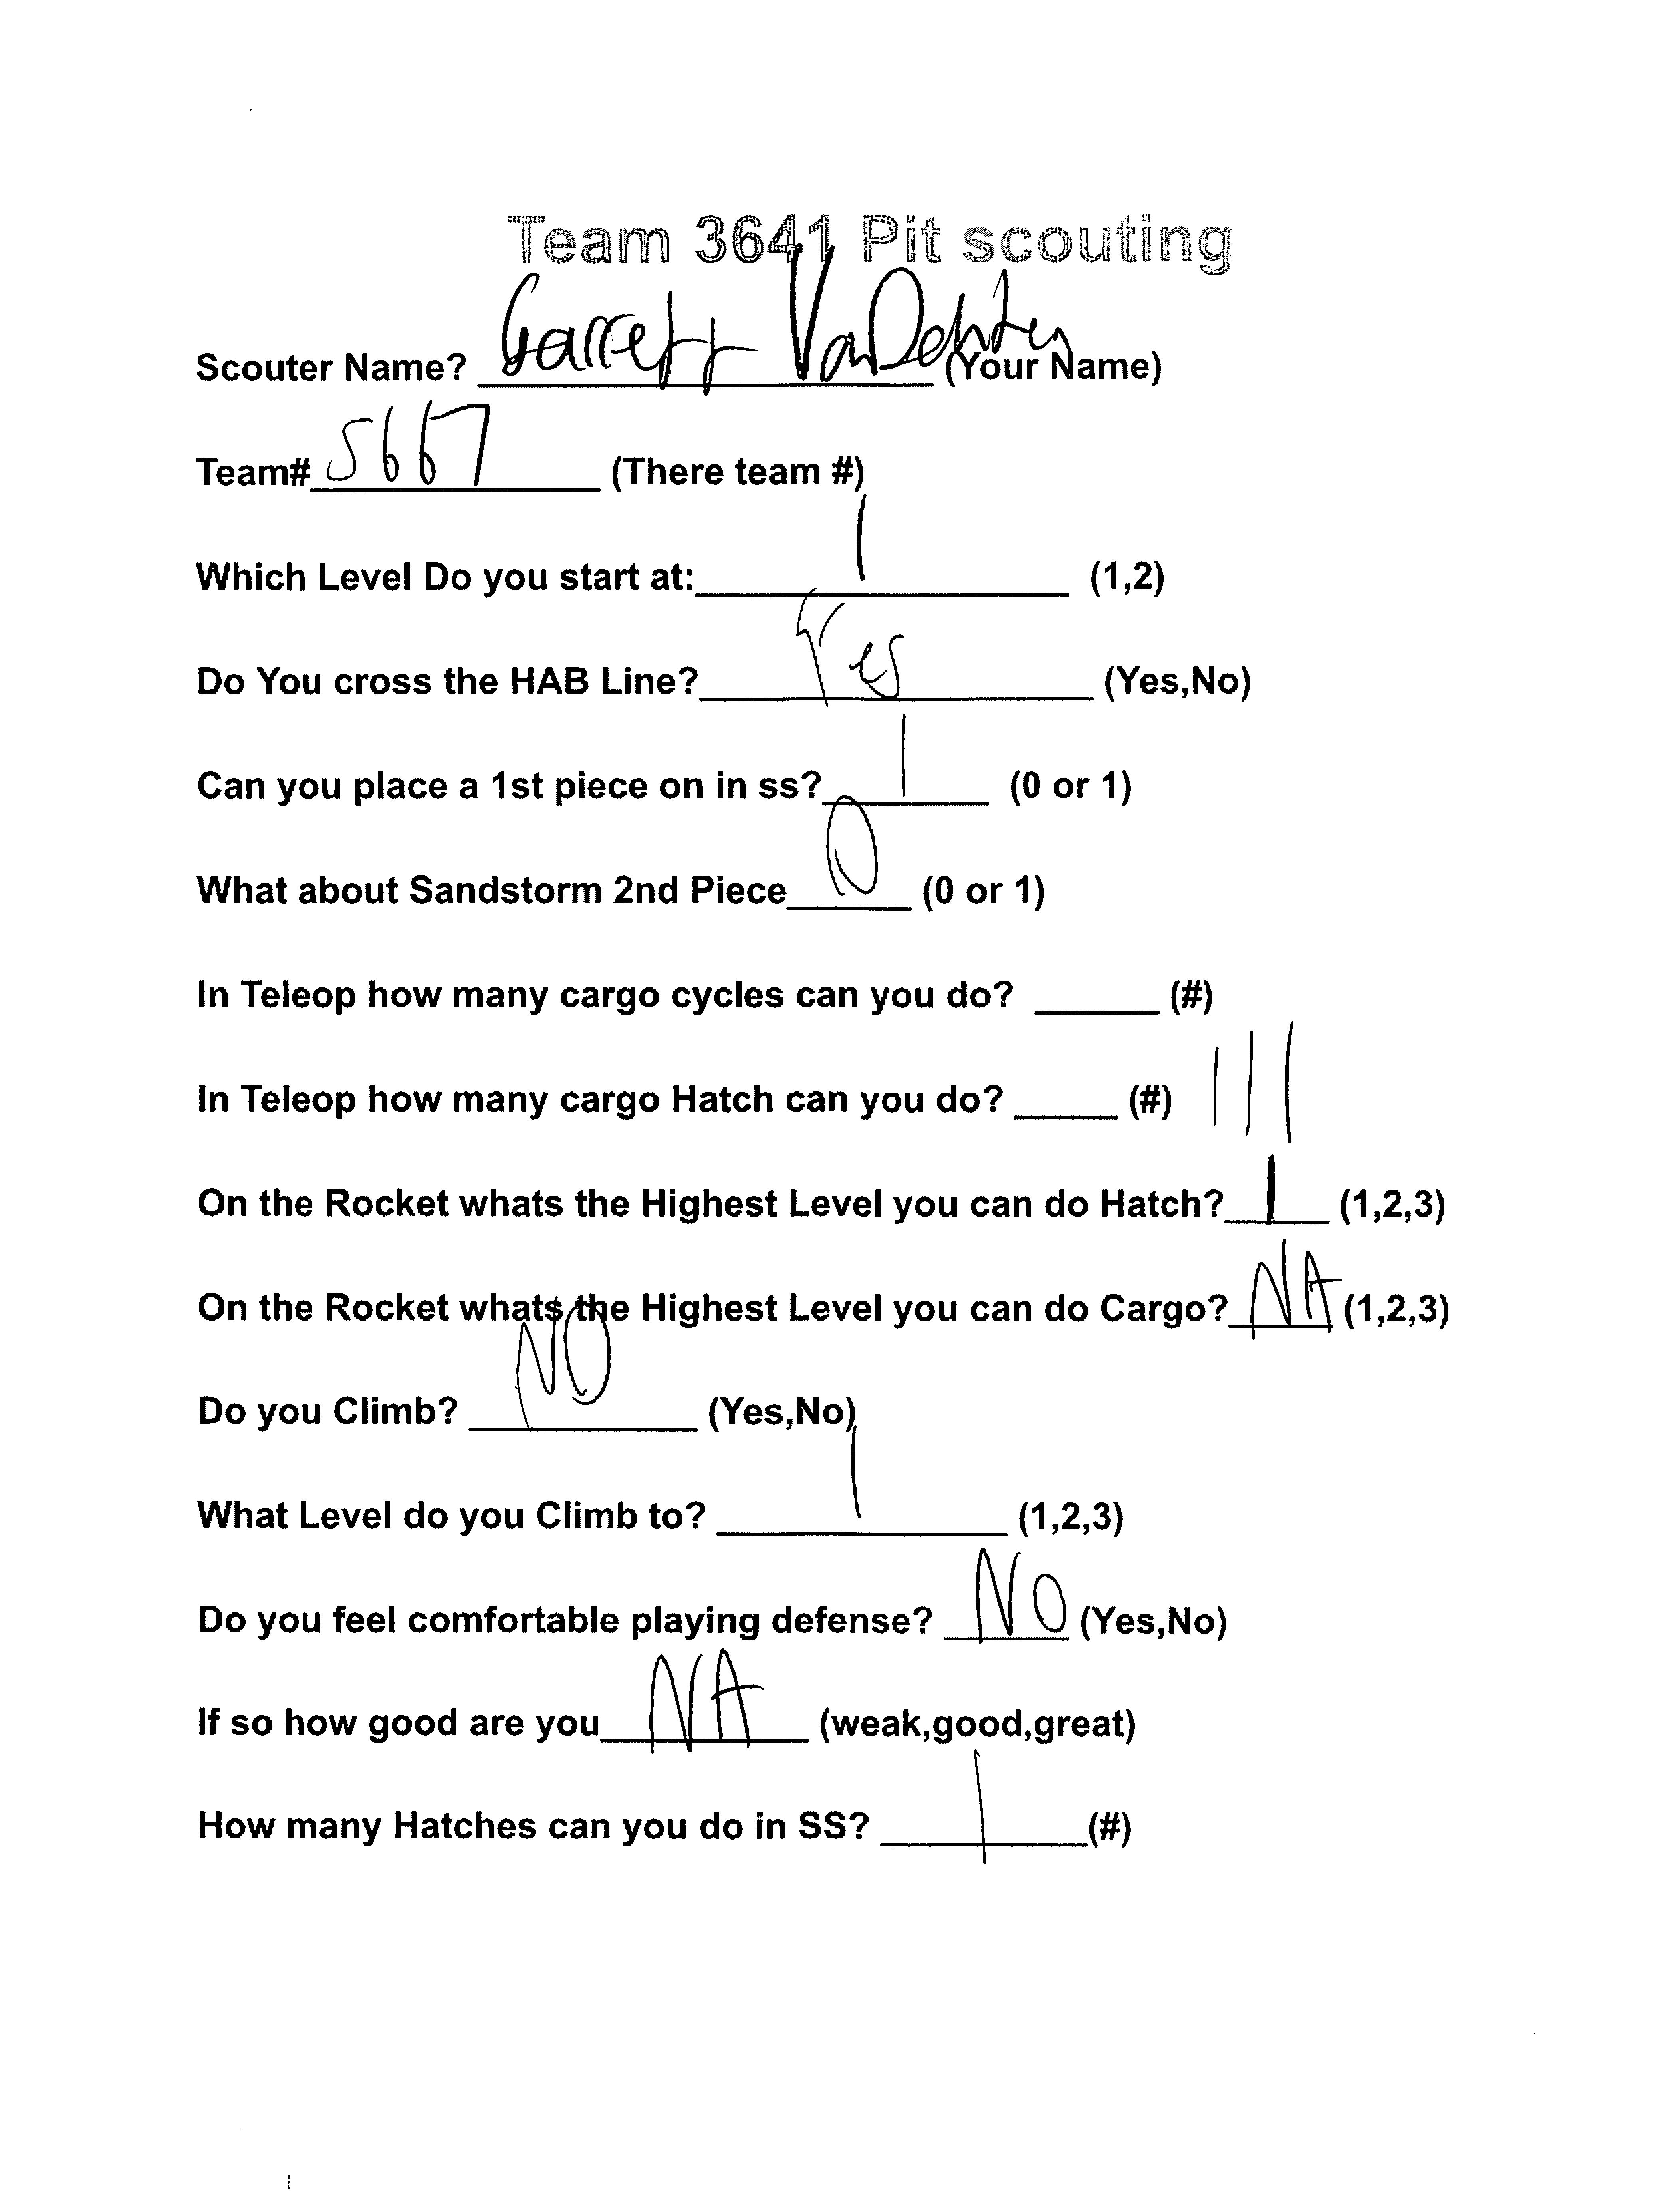 Team 3641 Pit scouting
Scouter Name? Garrett (Your Name)
Team# 5667 (There team #)
Which Level Do you start at: 1 (1,2)
Do You cross the HAB Line? Yes (Yes,No)
Can you place a 1st piece on in ss? 1 (0 or 1)
What about Sandstorm 2nd Piece 0 (0 or 1)
In Teleop how many cargo cycles can you do? (#)
In Teleop how many cargo Hatch can you do? (#) |||
On the Rocket whats the Highest Level you can do Hatch? 1 (1,2,3)
On the Rocket whats the Highest Level you can do Cargo? NA (1,2,3)
Do you Climb? NO (Yes,No)
What Level do you Climb to? 1 (1,2,3)
Do you feel comfortable playing defense? NO (Yes,No)
If so how good are you NA (weak,good,great)
How many Hatches can you do in SS? 1 (#)